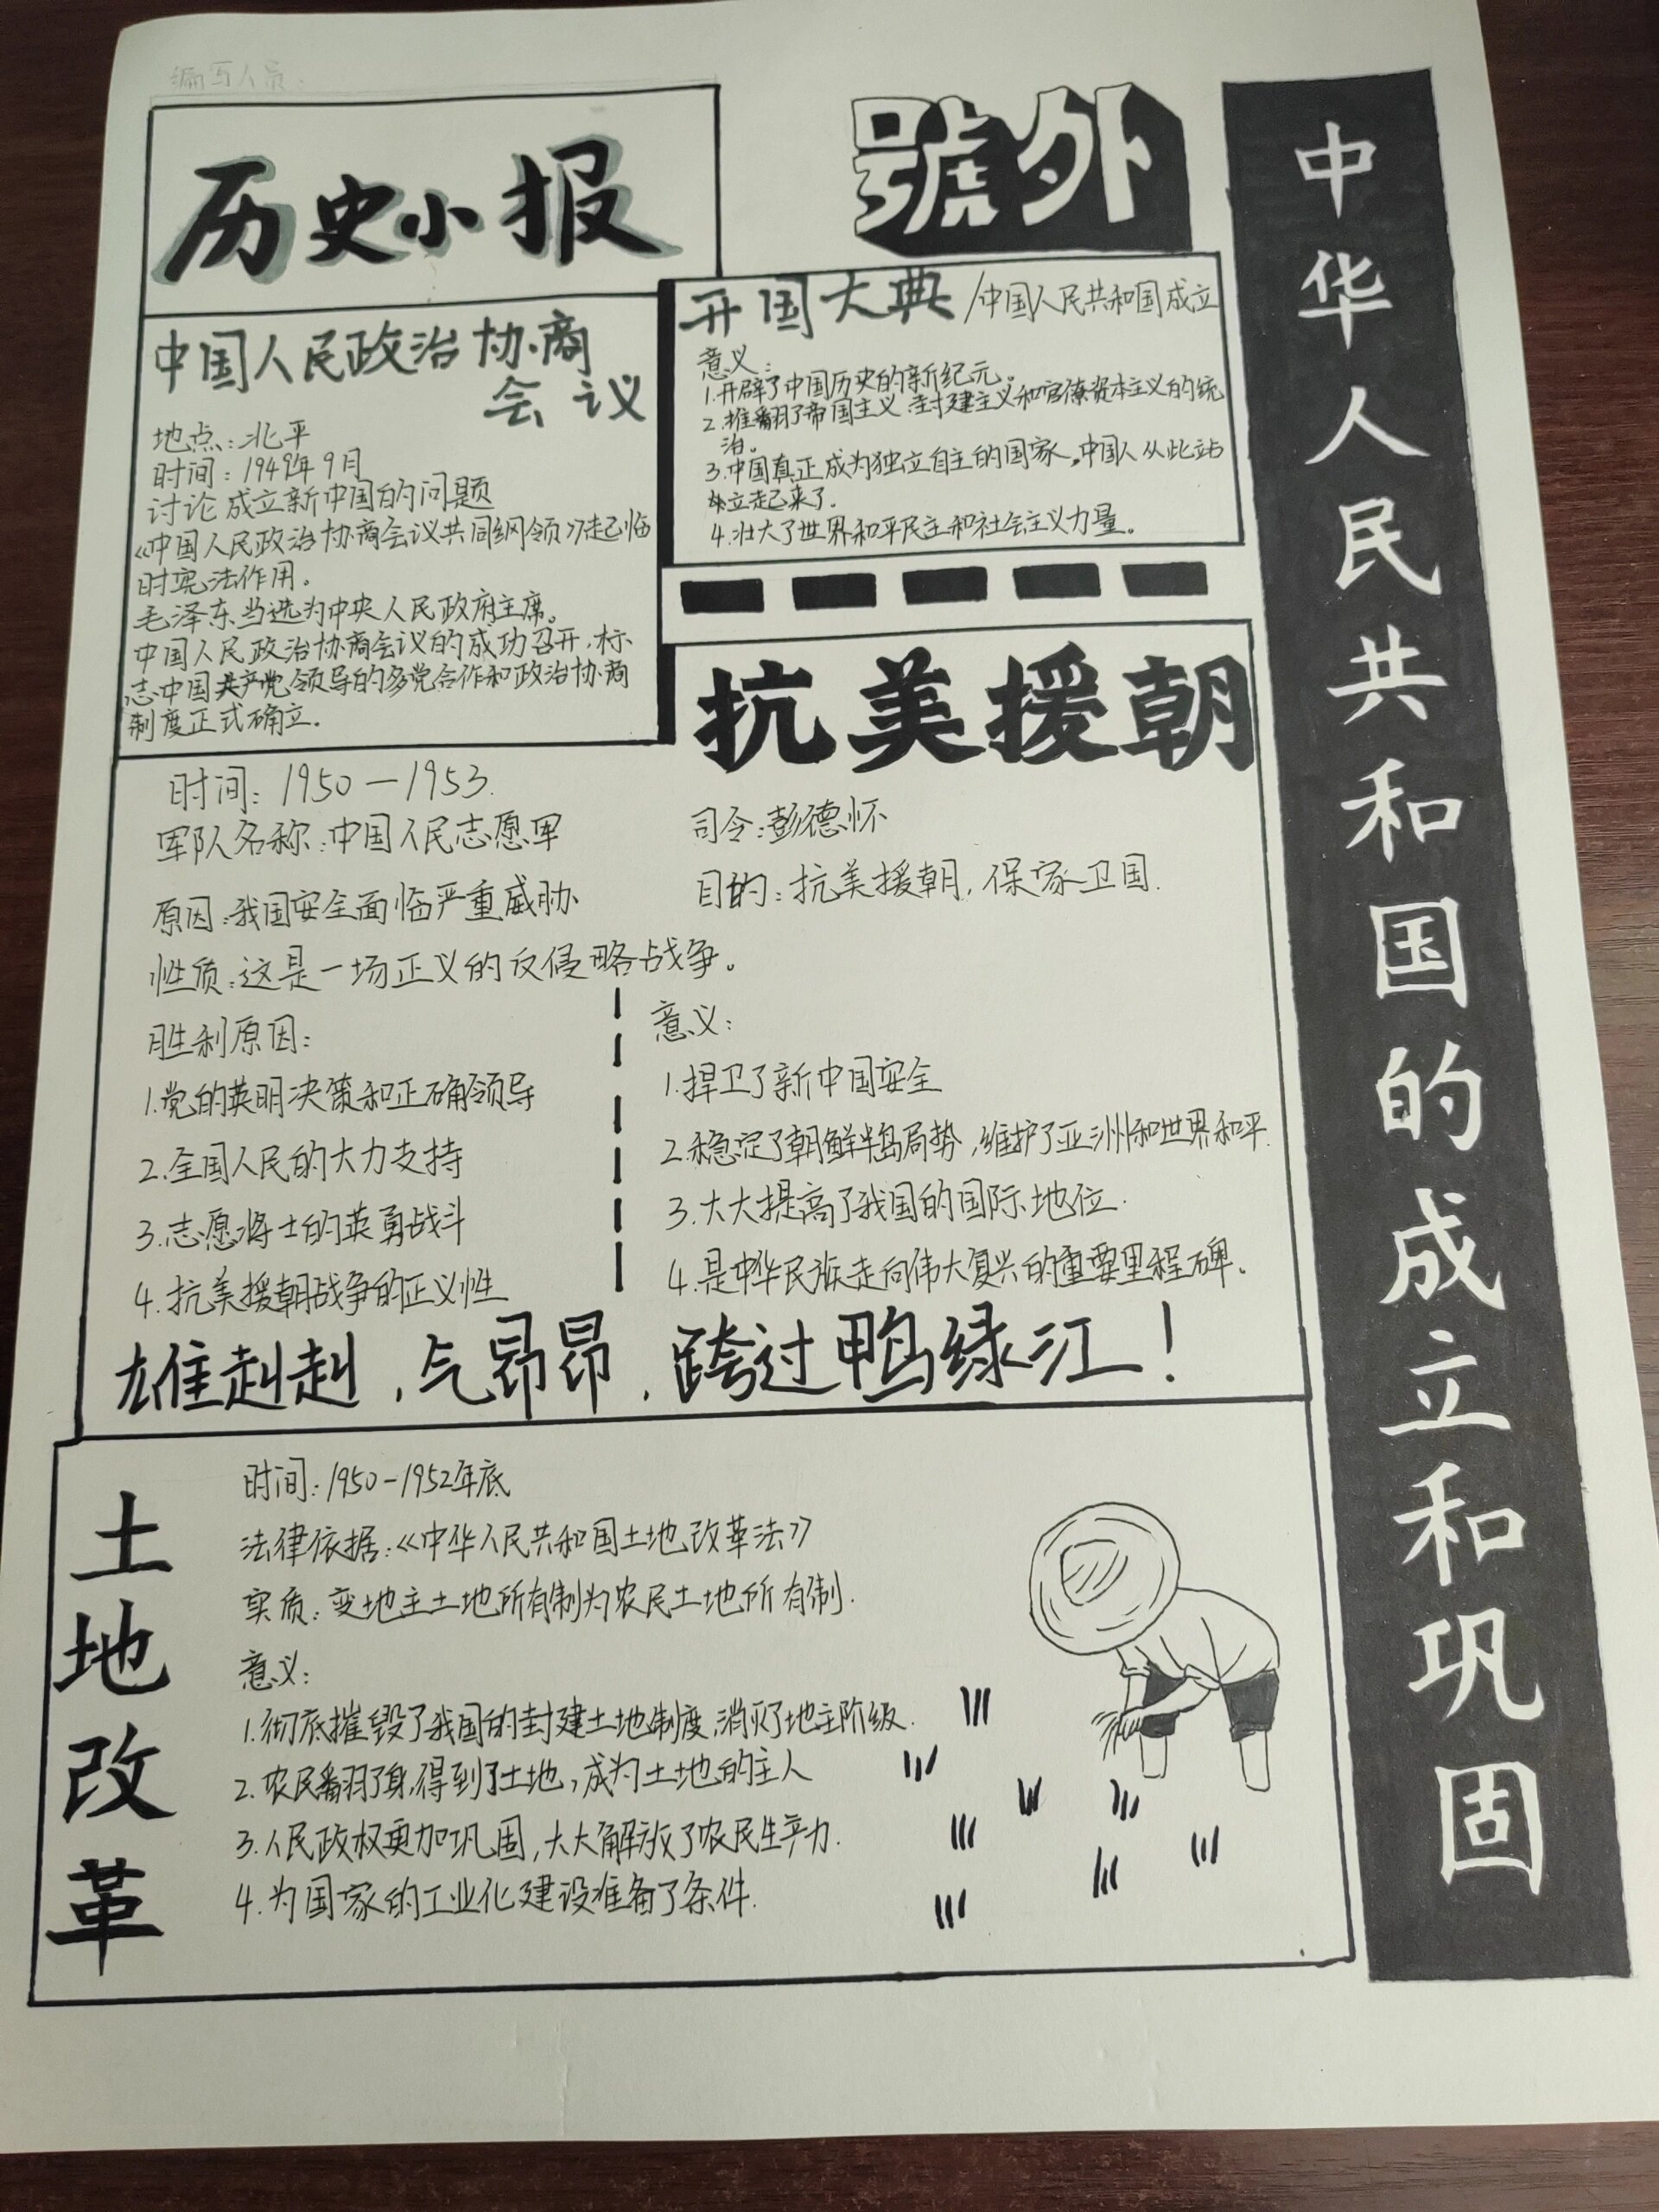 编写人员：
历史小报
號外
中华人民共和国的成立和巩固
中国人民政治协商
会议
地点：北平
时间：1949年9月
讨论成立新中国的问题
《中国人民政治协商会议共同纲领》起临
时宪法作用。
毛泽东当选为中央人民政府主席。
中国人民政治协商会议的成功召开，标
志中国共产党领导的多党合作和政治协商
制度正式确立.
开国大典/中国人民共和国成立
意义：
1.开辟了中国历史的新纪元。
2.推翻了帝国主义、封建主义和官僚资本主义的统
治。
3.中国真正成为独立自主的国家，中国人从此站
立起来了.
4.壮大了世界和平民主和社会主义力量。
抗美援朝
时间：1950—1953.
军队名称：中国人民志愿军
司令：彭德怀
原因：我国安全面临严重威胁
目的：抗美援朝，保家卫国.
性质：这是一场正义的反侵略战争。
胜利原因：
1.党的英明决策和正确领导
2.全国人民的大力支持
3.志愿将士的英勇战斗
4.抗美援朝战争的正义性
意义：
1.捍卫了新中国安全
2.稳定了朝鲜半岛局势，维护了亚洲和世界和平.
3.大大提高了我国的国际地位.
4.是中华民族走向伟大复兴的重要里程碑。
雄赳赳，气昂昂，跨过鸭绿江！
土地改革
时间：1950-1952年底
法律依据：《中华人民共和国土地改革法》
实质：变地主土地所有制为农民土地所有制.
意义：
1.彻底摧毁了我国的封建土地制度，消灭了地主阶级.
2.农民翻了身，得到了土地，成为土地的主人
3.人民政权更加巩固，大大解放了农民生产力.
4.为国家的工业化建设准备了条件.